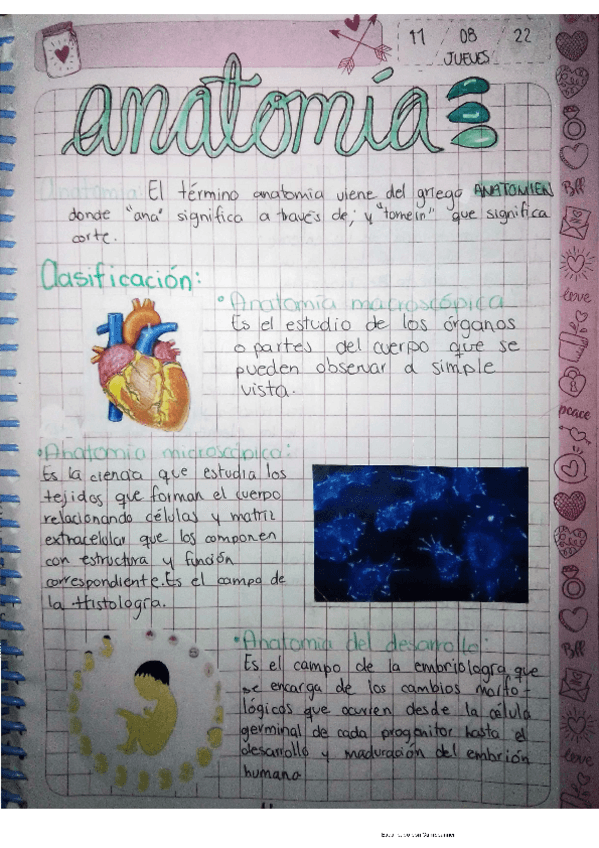 11 / 08 / 22
JUEVES
anatomía
Anatomía: El término anatomia viene del griego ANATOMIEN
donde "ana" significa a través de; y "tomein" que significa
corte.
Clasificación:
• Anatomía macroscópica
Es el estudio de los órganos
o partes del cuerpo que se
pueden observar a simple
vista.
• Anatomia microscópica:
Es la ciencia que estudia los
tejidos que forman el cuerpo
relacionando células y matriz
extracelular que los componen
con estructura y función
correspondiente. Es el campo de
la Histología.
• Anatomía del desarrollo:
Es el campo de la embriología que
se encarga de los cambios morfo-
lógicos que ocurren desde la célula
germinal de cada progenitor hasta el
desarrollo y maduración del embrión
humano
Bff
love
peace
Bff
love